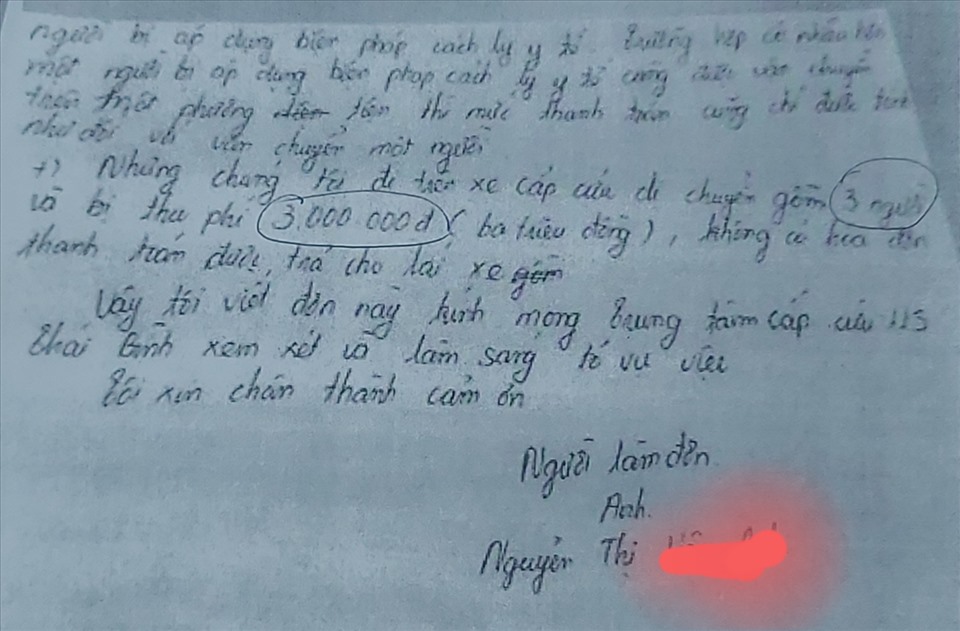 người bị áp dụng biện pháp cách ly y tế. Trường hợp có nhiều hơn
một người bị áp dụng biện pháp cách ly y tế cùng được vận chuyển
trên một phương tiện thì mức thanh toán cũng chỉ được tính
như đối với vận chuyển một người
+) Nhưng chúng tôi đi trên xe cấp cứu di chuyển gồm 3 người
và bị thu phí 3.000.000đ (ba triệu đồng), không có hóa đơn
thanh toán được, trả cho lái xe gồm
Vậy tôi viết đơn này kính mong Trung tâm cấp cứu 115
Thái Bình xem xét và làm sáng tỏ vụ việc
Tôi xin chân thành cảm ơn
Người làm đơn
Anh.
Nguyễn Thị